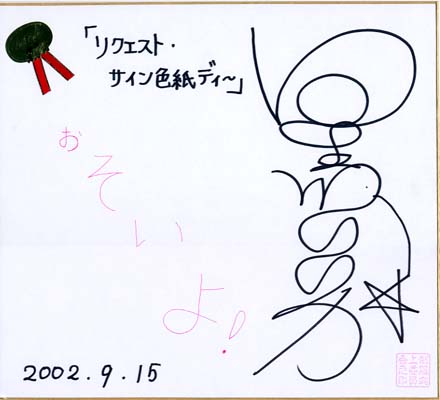 「リクエスト・
サイン色紙ディ～」
おそいよ!
2002.9.15